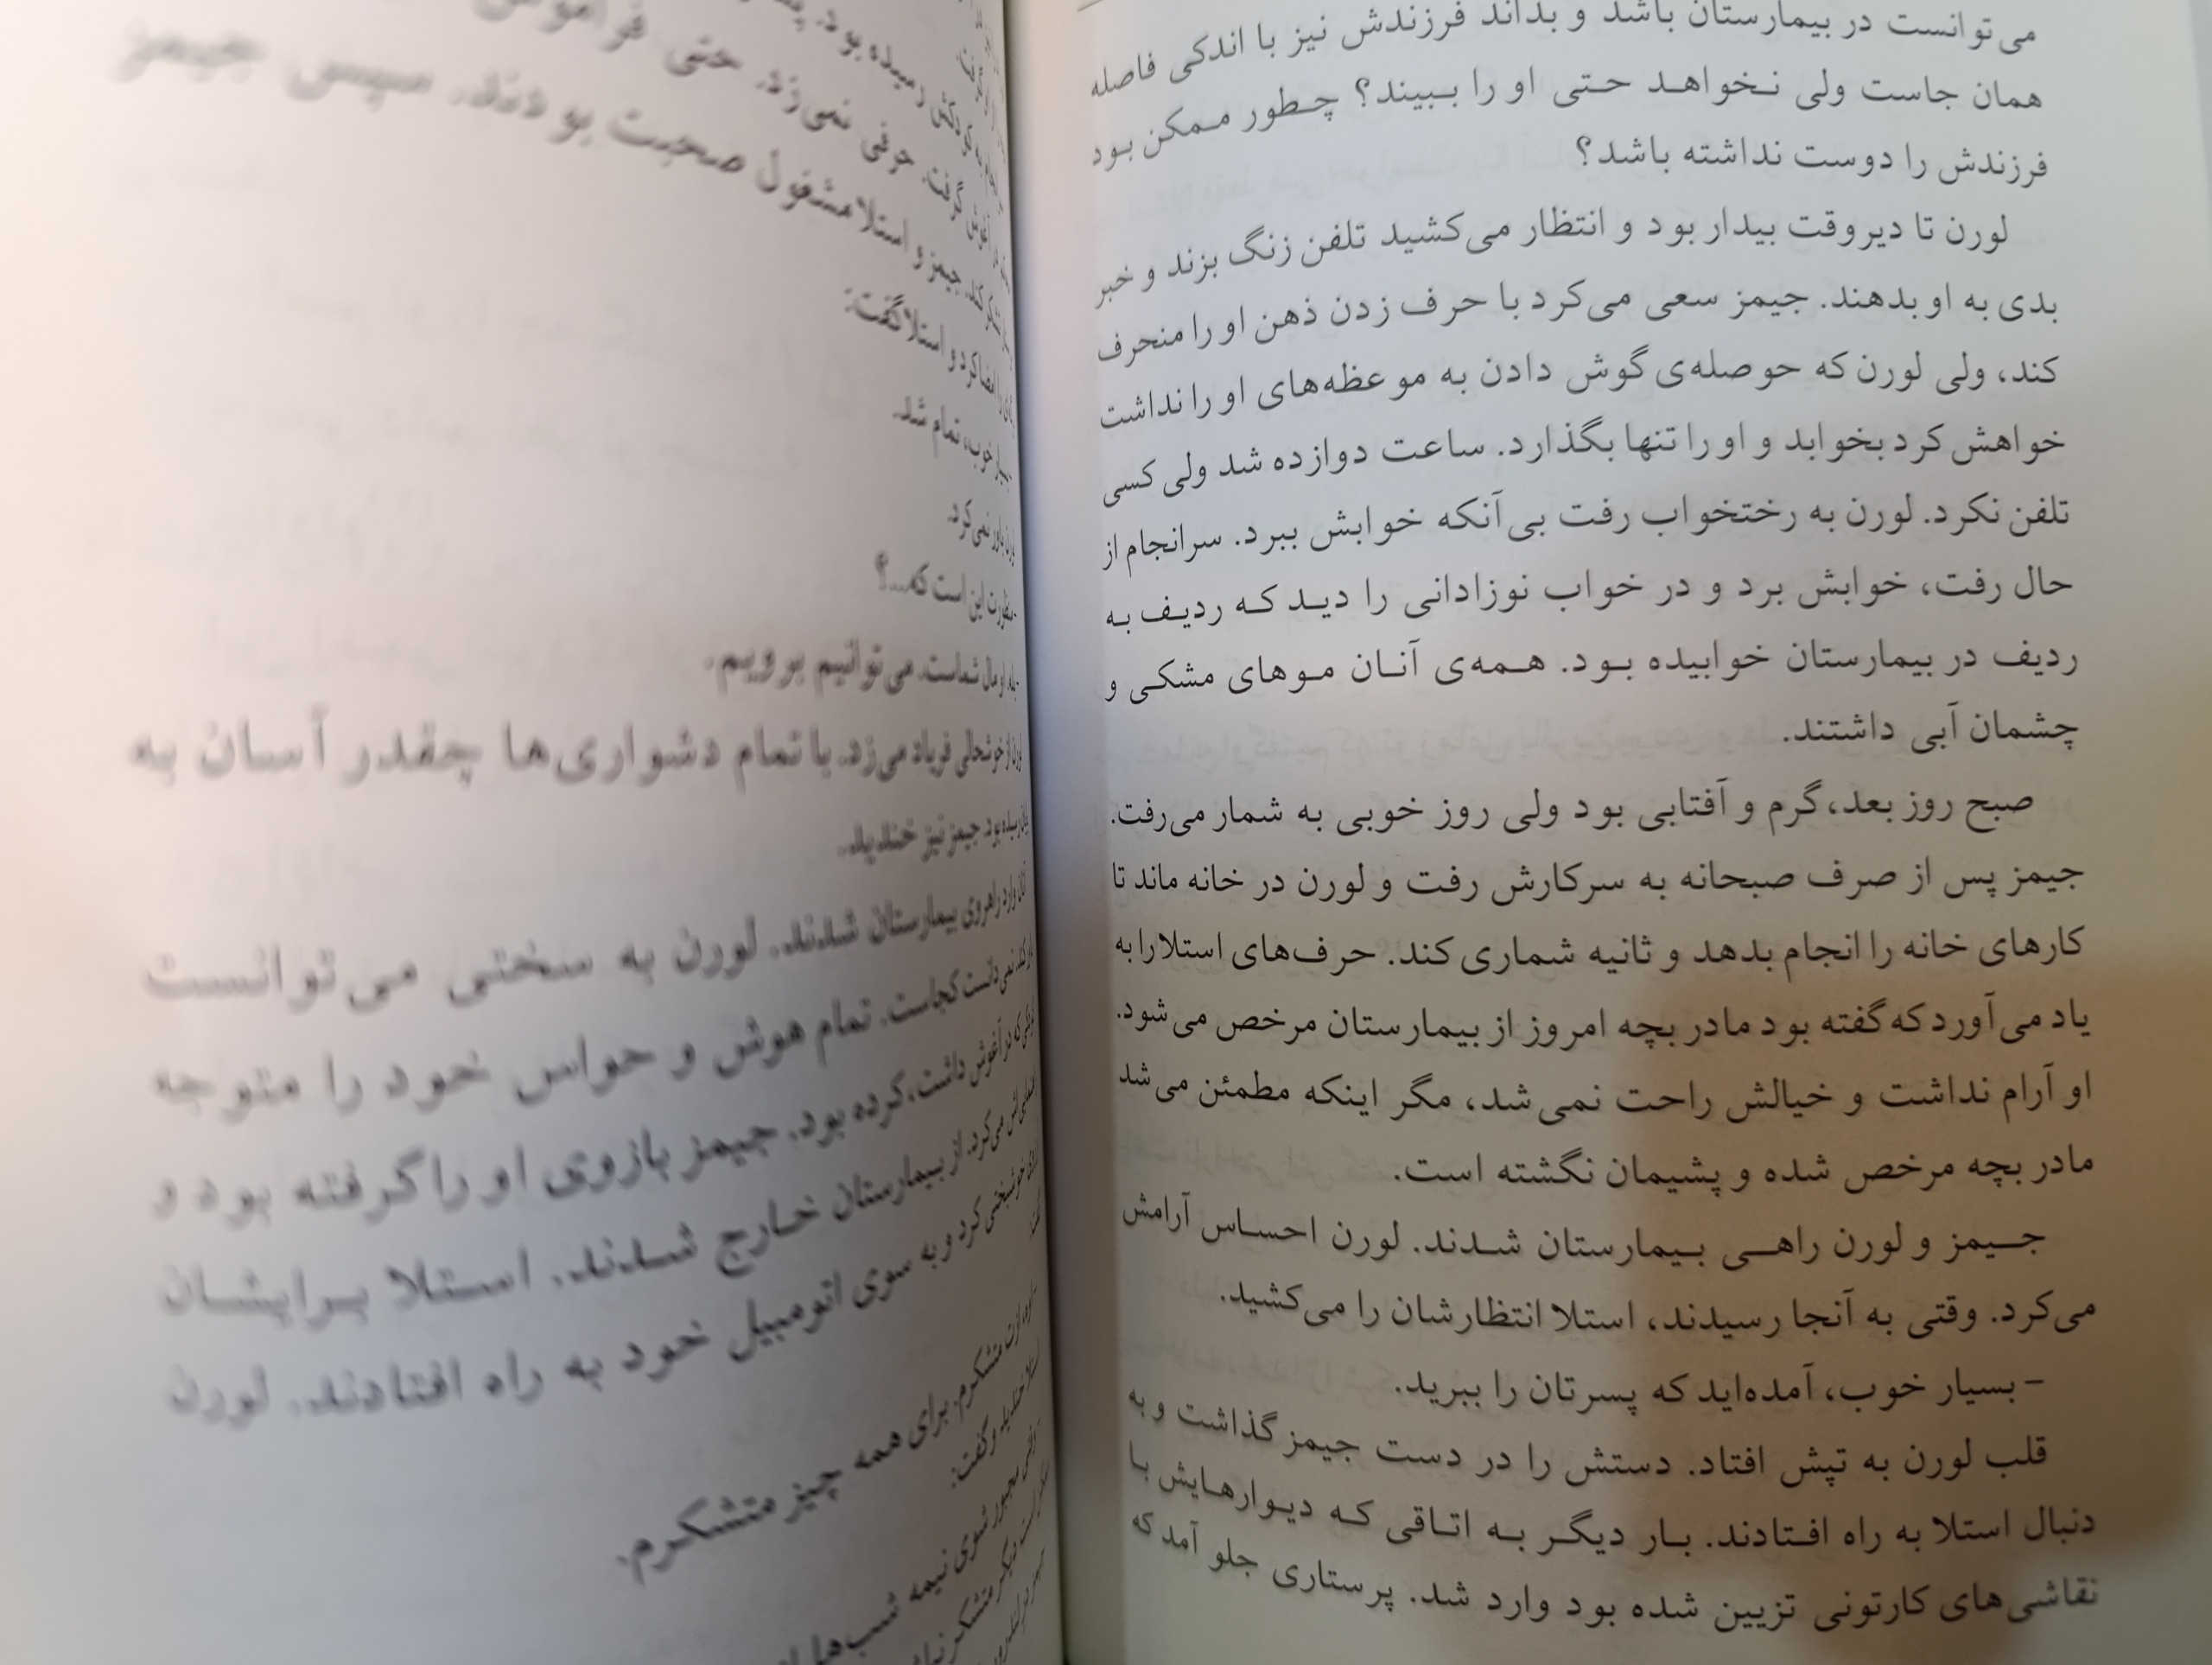 می‌توانست در بیمارستان باشد و بداند فرزندش نیز با اندکی فاصله
همان جاست ولی نخواهد حتی او را ببیند؟ چطور ممکن بود
فرزندش را دوست نداشته باشد؟
لورن تا دیروقت بیدار بود و انتظار می‌کشید تلفن زنگ بزند و خبر
بدی به او بدهند. جیمز سعی می‌کرد با حرف زدن ذهن او را منحرف
کند، ولی لورن که حوصله‌ی گوش دادن به موعظه‌های او را نداشت
خواهش کرد بخوابد و او را تنها بگذارد. ساعت دوازده شد ولی کسی
تلفن نکرد. لورن به رختخواب رفت بی‌آنکه خوابش ببرد. سرانجام از
حال رفت، خوابش برد و در خواب نوزادانی را دید که ردیف به
ردیف در بیمارستان خوابیده بود. همه‌ی آنان موهای مشکی و
چشمان آبی داشتند.
صبح روز بعد، گرم و آفتابی بود ولی روز خوبی به شمار می‌رفت.
جیمز پس از صرف صبحانه به سرکارش رفت و لورن در خانه ماند تا
کارهای خانه را انجام بدهد و ثانیه شماری کند. حرف‌های استلا را به
یاد می‌آورد که گفته بود مادر بچه امروز از بیمارستان مرخص می‌شود.
او آرام نداشت و خیالش راحت نمی‌شد، مگر اینکه مطمئن می‌شد
مادر بچه مرخص شده و پشیمان نگشته است.
جیمز و لورن راهی بیمارستان شدند. لورن احساس آرامش
می‌کرد. وقتی به آنجا رسیدند، استلا انتظارشان را می‌کشید.
– بسیار خوب، آمده‌اید که پسرتان را ببرید.
قلب لورن به تپش افتاد. دستش را در دست جیمز گذاشت و به
دنبال استلا به راه افتادند. بار دیگر به اتاقی که دیوارهایش با
نقاشی‌های کارتونی تزیین شده بود وارد شد. پرستاری جلو آمد که
گرفت. حرفی نمی‌زد. حتی
جیمز و استلا مشغول صحبت بودند. سپس جیمز
را امضا کرد و استلا گفت:
خوب، تمام شد.
باور نمی‌کرد.
- منظورت این است که...؟
- بله. او مال شماست. می‌توانیم برویم.
از خوشحالی فریاد می‌زد. با تمام دشواری‌ها چقدر آسان به
رسیده بود. جیمز نیز خندید.
وارد راهروی بیمارستان شدند. لورن به سختی می‌توانست
نمی‌دانست کجاست. تمام هوش و حواس خود را متوجه
که در آغوش داشت، کرده بود. جیمز بازوی او را گرفته بود و
می‌کرد. از بیمارستان خارج شدند. استلا برایشان
خوشبختی کرد و به سوی اتومبیل خود به راه افتادند. لورن
متشکرم. برای همه چیز متشکرم.
استلا خندید و گفت:
مجبور شوی نیمه شب‌ها